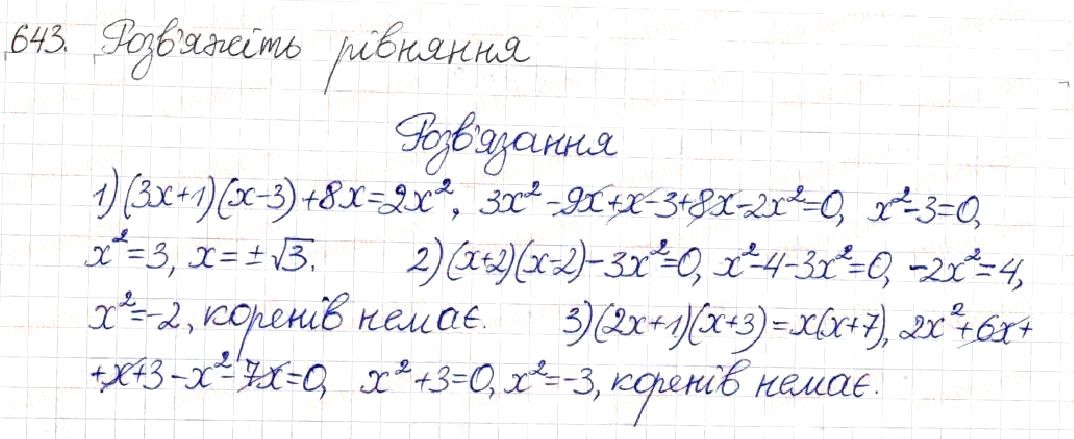 643. Розв'яжіть рівняння
Розв'язання
1) (3x+1)(x-3)+8x=2x², 3x²-9x+x-3+8x-2x²=0, x²-3=0,
x²=3, x=±√3. 2) (x+2)(x-2)-3x²=0, x²-4-3x²=0, -2x²=4,
x²=-2, коренів немає. 3) (2x+1)(x+3)=x(x+7), 2x²+6x+
+x+3-x²-7x=0, x²+3=0, x²=-3, коренів немає.